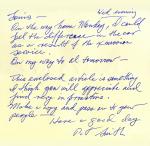 Irving - Wed evening
On the way home Monday, I could
feel the difference in the car
as a result of the
service.
On my way to tomorrow -
This enclosed article is something
I think you will appreciate and
find very informative.
Make a copy and pass on to your
people.
Have a good day
Smith